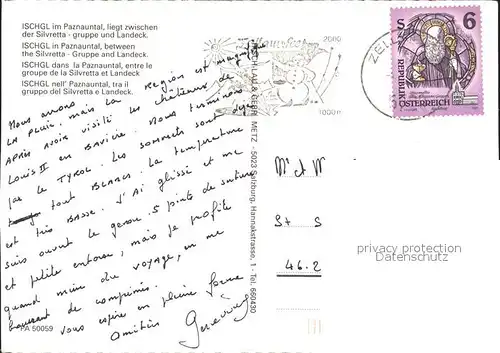 ISCHGL im Paznauntal, liegt zwischen
der Silvretta - gruppe und Landeck.
ISCHGL in Paznauntal, between
the Silvretta - Gruppe and Landeck.
ISCHGL dans la Paznauntal, entre le
groupe de la Silvretta et Landeck
ISCHGL nell' Paznauntal, tra il
gruppo del Silvretta e Landeck.
Nous avons
la pluie, mais la Région est magnifique
Après avoir visité les châteaux de
Louis II en Bavière. Nous terminons
par le TYROL. Les sommets sont déjà
tout BLANCS. La température
est très BASSE. J'ai glissé et me
suis ouvert le genou. 5 points de suture
et petite entorse, mais je profite
quand même du voyage, en me
de comprimés.
vous espère en pleine forme
Amitiés
PA 50059
SCHLAU & BEER, METZ - 5023 Salzburg, Hannakstrasse, 1 - Tel. 660430
2000
S 6
REPUBLIK
ÖSTERREICH
M et M
S + S
46.2
privacy protection
Datenschutz